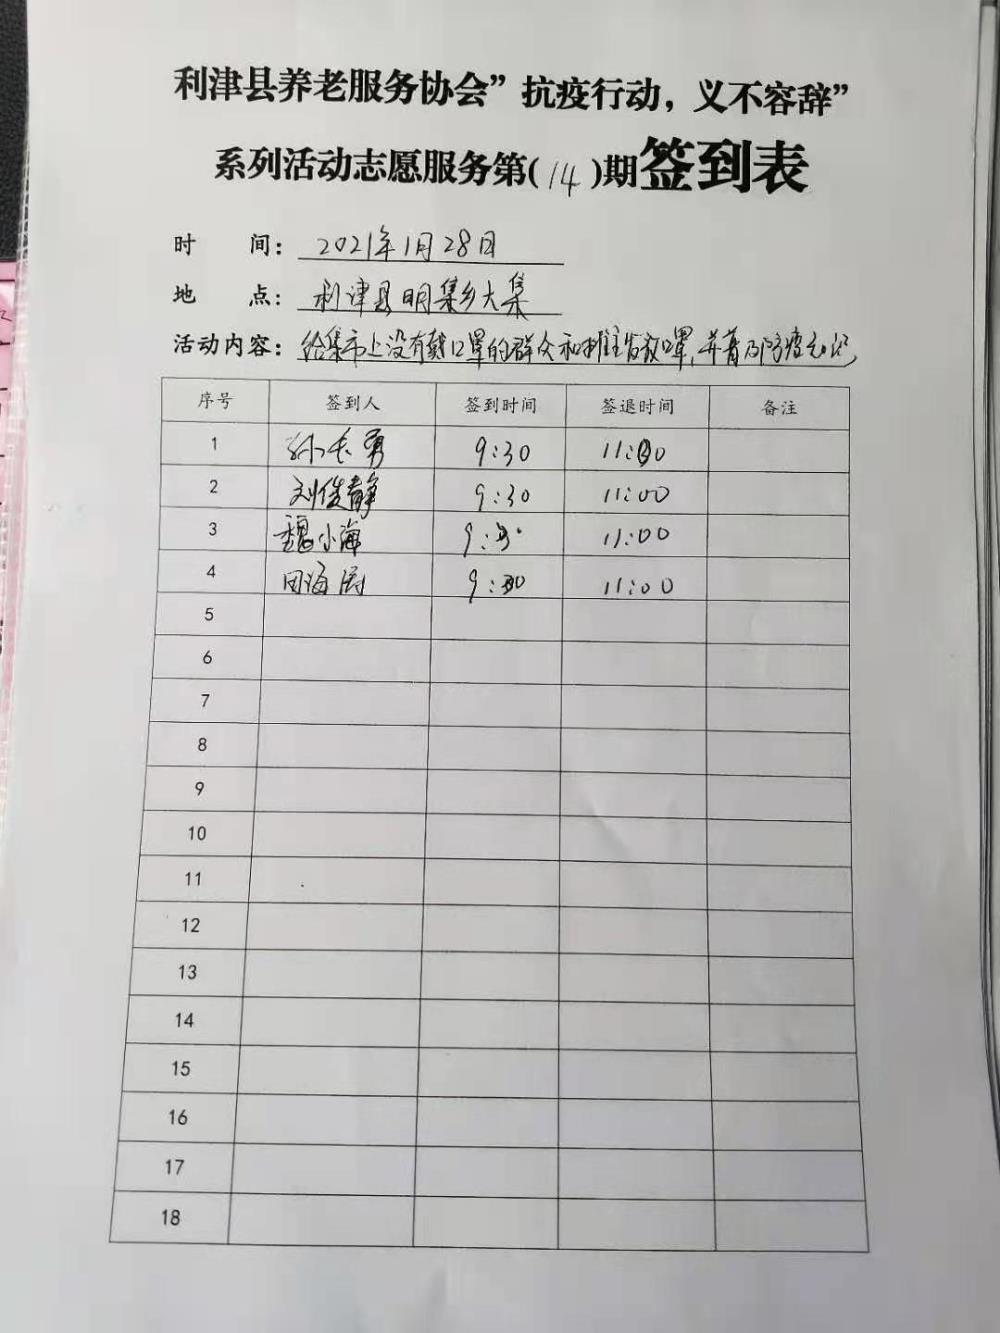 利津县养老服务协会”抗疫行动，义不容辞”
系列活动志愿服务第(14)期签到表
时 间：2021年1月28日
地 点：利津县明集乡大集
活动内容：给集市上没有戴口罩的群众和摊主发放口罩，并普及防疫知识
序号 签到人 签到时间 签退时间 备注
1 孙长勇 9:30 11:00
2 刘俊静 9:30 11:00
3 魏小海 9:30 11:00
4 田海 9:30 11:00
5
6
7
8
9
10
11
12
13
14
15
16
17
18